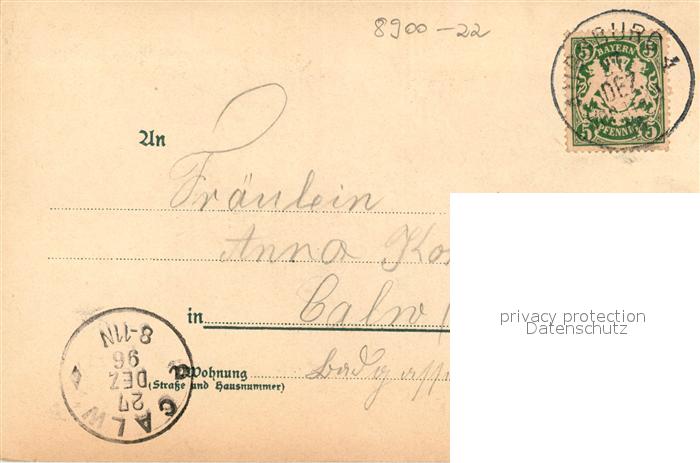 8900-22
5 BAYERN 5
5 PFENNIG 5
DEZ
An
Fräulein
Anna
in Calw
Wohnung
(Straße und Hausnummer)
Badgasse
CALW
27
DEZ
96
8-11N
privacy protection
Datenschutz